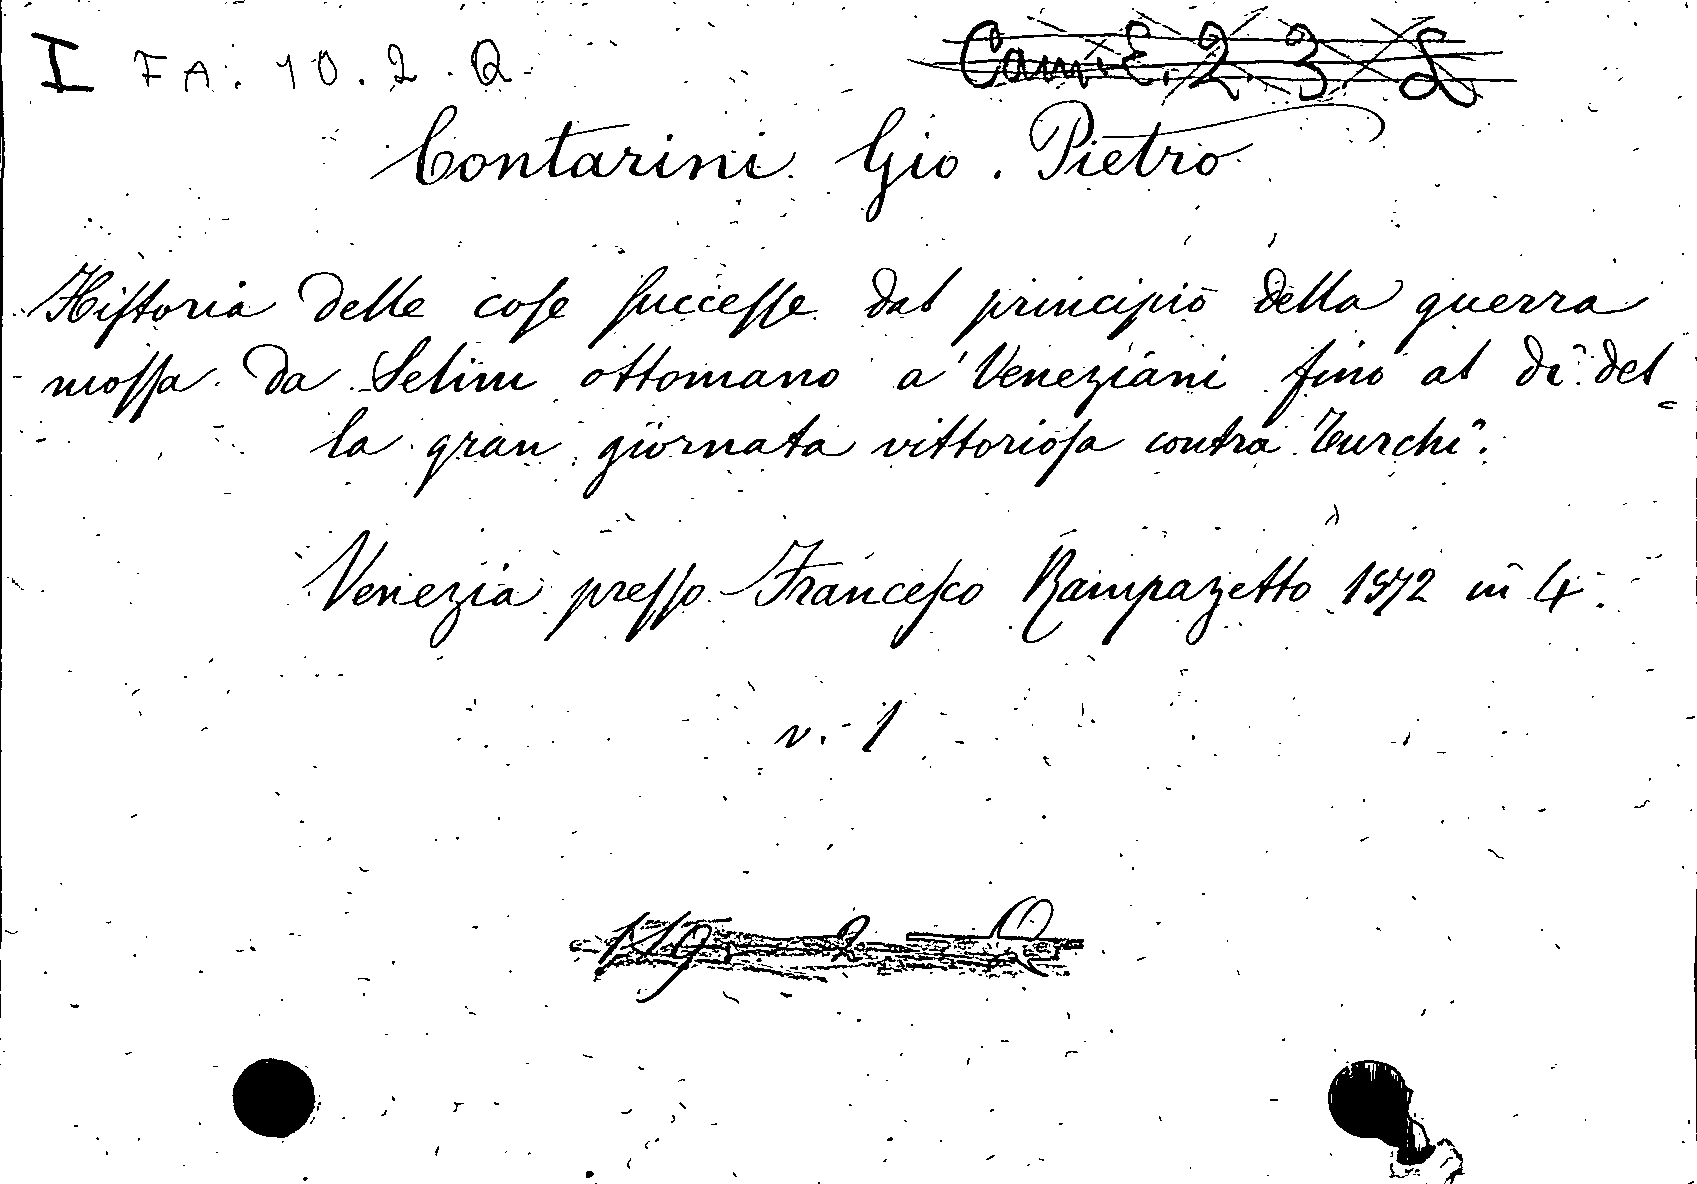 I FA. 10. 2. Q. Cam. E. 2. 3. L
Contarini Gio. Pietro
Hiſtoria delle coſe ſucceſſe dal principio della guerra
moſſa da Selim ottomano a' Veneziani fino al dì del
la gran giornata vittorioſa contra Turchi.
Venezia preſſo Franceſco Rampazetto 1572 in 4.
v. 1
2 Q